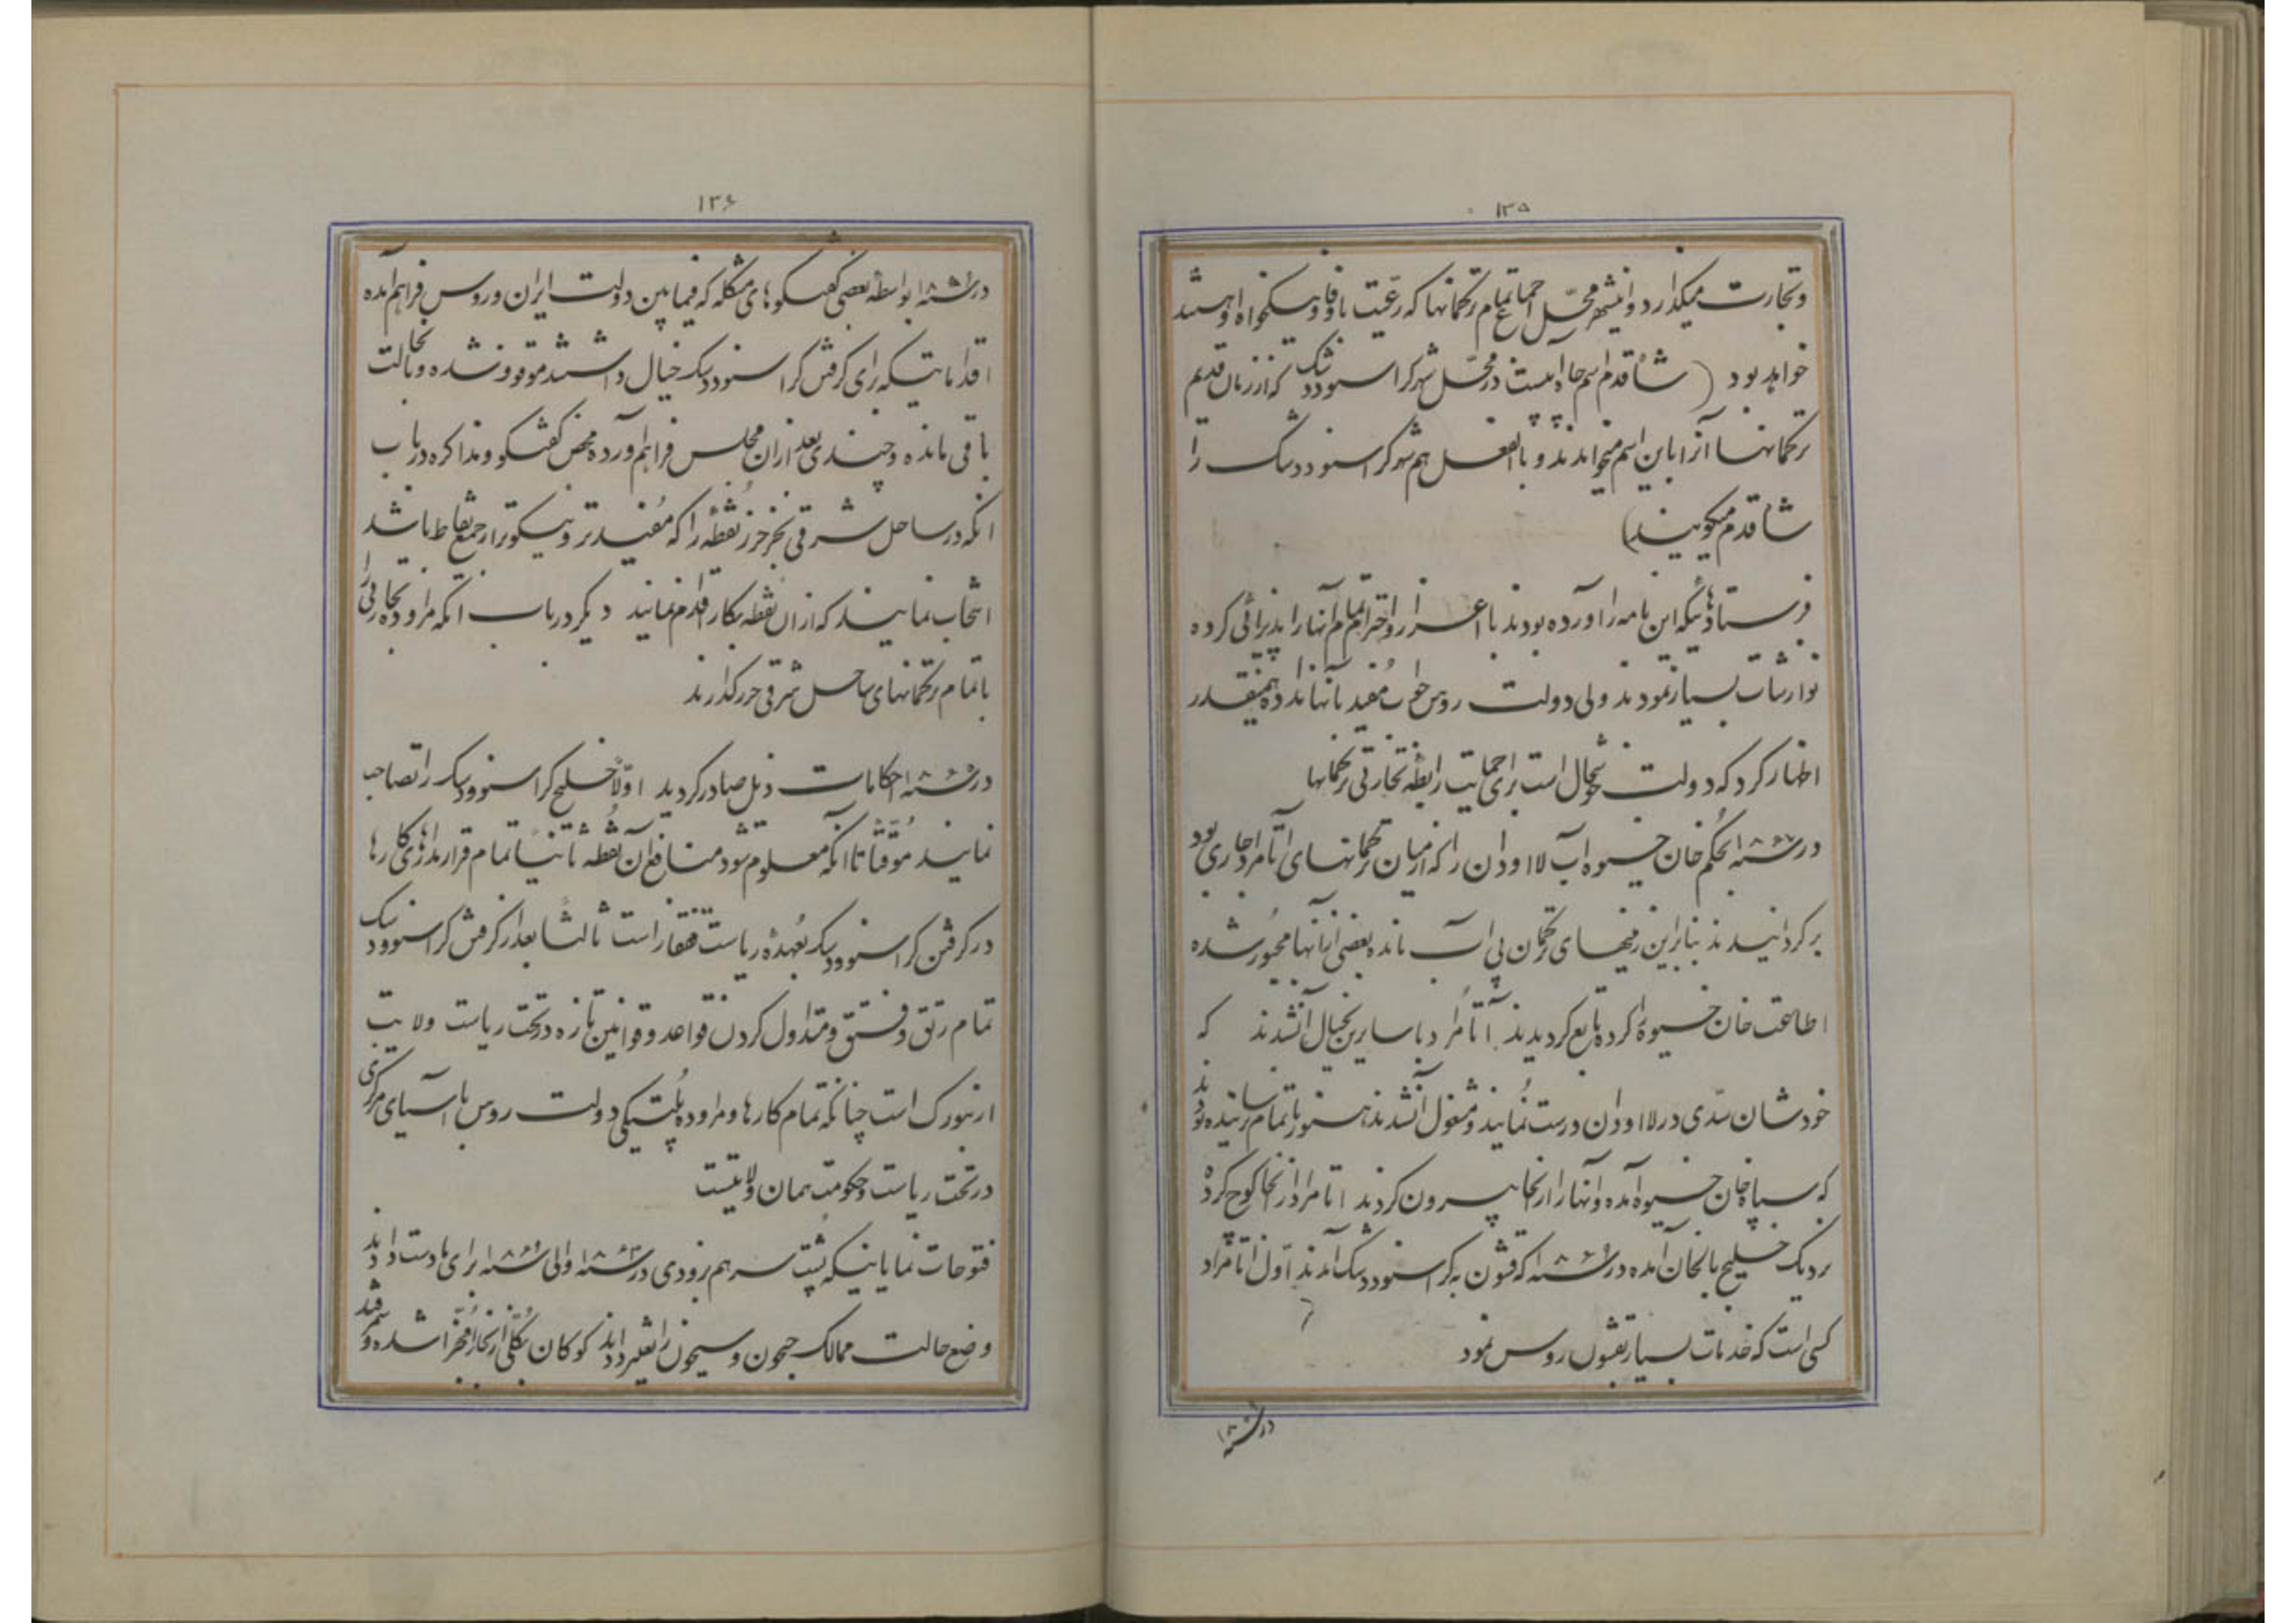 ۱۳۵
و تجارت میگذارد و اینشهر محل اجتماع تمام ترکمانها که رعیت باوفا و نیکخواه او هستند
خواهد بود (شاقدم اسم چاه آبیست در محل شهر کراسنوودسک که از زمان قدیم
ترکمانها آنرا باین اسم میخوانند و بالفعل هم شهر کراسنوودسک را
شاقدم میگویند)
فرستادهائیکه این نامه را آورده بودند با اعزاز و احترام تمام آنها را پذیرائی کرده
نوازشات بسیار نمودند ولی دولت روس جواب مفید بآنها نداده همینقدر
اظهار کرد که دولت بخیال است برای حمایت رابطه تجارتی ترکمانها
در سنه ۱۸ بحکم خان خیوه آب لااودان را که از میان ترکمانهای اتامراد جاری بود
برگردانیدند بنابراین زمینهای ترکمان بی آب مانده بعضی از آنها مجبور شده
اطاعت خان خیوه را کرده تابع گردیدند اتامراد با سایرین بخیال آنشدند که
خودشان سدی در لااودان درست نمایند و مشغول آنشدند هنوز باتمام نرسانیده بودند
که سپاه خان خیوه آمده و آنها را از آنجا بیرون کردند اتامراد از آنجا کوچ کرده
نزدیک خلیج بالخان آمده در سنه ۱۸ که قشون به کراسنوودسک آمدند اول اتامراد
کسی است که خدمات بسیار بقشون روس نمود
در سنه
۱۳۶
در سنه ۱۸ بواسطه بعضی گفتگوهای مشکله که فیمابین دولت ایران و روس فراهم آمده
اقداماتیکه برای گرفتن کراسنوودسک خیال داشتند موقوف شده و بحالت
باقی مانده و چندی بعد از آن مجلس فراهم آورده محض گفتگو و مذاکره در باب
آنکه در ساحل شرقی بحر خزر نقطه را که مفیدتر و نیکوتر از جمیع نقاط باشد
انتخاب نمایند که از آن نقطه بکار اقدام نمایند دیگر در باب آنکه مراوده تجارتی را
با تمام ترکمانهای ساحل شرقی خزر گذارند
در سنه ۱۸ احکامات ذیل صادر گردید اولا خلیج کراسنوودسک را تصاحب
نمایند موقتا تا آنکه معلوم شود منافع آن نقطه ثانیا تمام قراردادهای کارها
در گرفتن کراسنوودسک بعهده ریاست قفقاز است ثالثا بعد از گرفتن کراسنوودسک
تمام رتق و فتق و متداول کردن قواعد و قوانین تازه در تحت ریاست ولایت
ارنبورک است چنانکه تمام کارها و مراوده پلتیکی دولت روس با آسیای مرکزی
در تحت ریاست و حکومت همان ولایتست
فتوحات نمایانیکه پشت سر هم بزودی در سنه ۱۸ والی سنه ۱۸ برای ما دست دادند
وضع حالت ممالک جیحون و سیحون را تغییر دادند کوکان بکلی از بخارا مجزا شده و